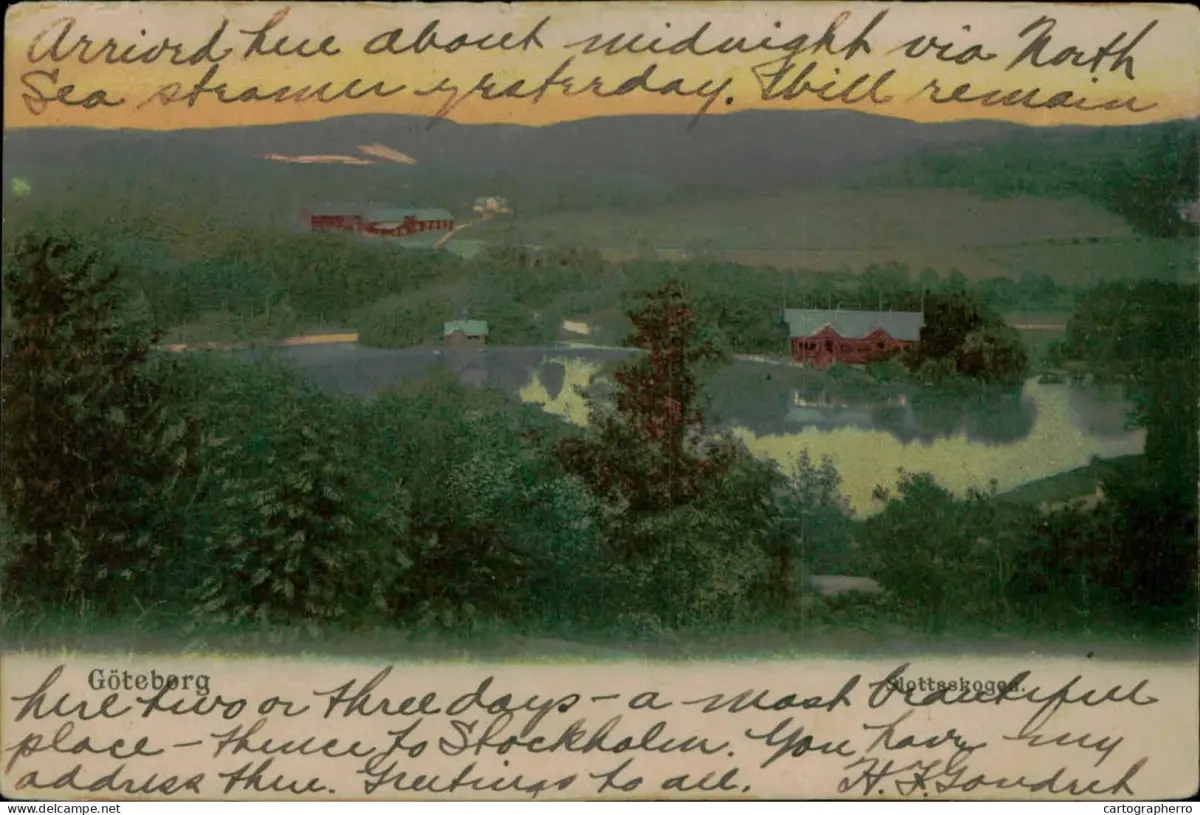 Arrived here about midnight via North
Sea steamer yesterday. Will remain
Göteborg
Slottsskogen.
here two or three days - a most beautiful
place - thence to Stockholm. You have my
address there. Greetings to all. H. F.
cartographerro